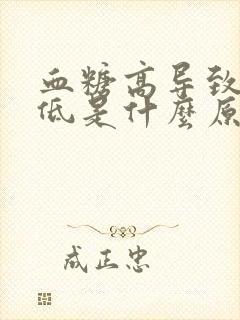 血糖高导致
低是什麼原
成正忠